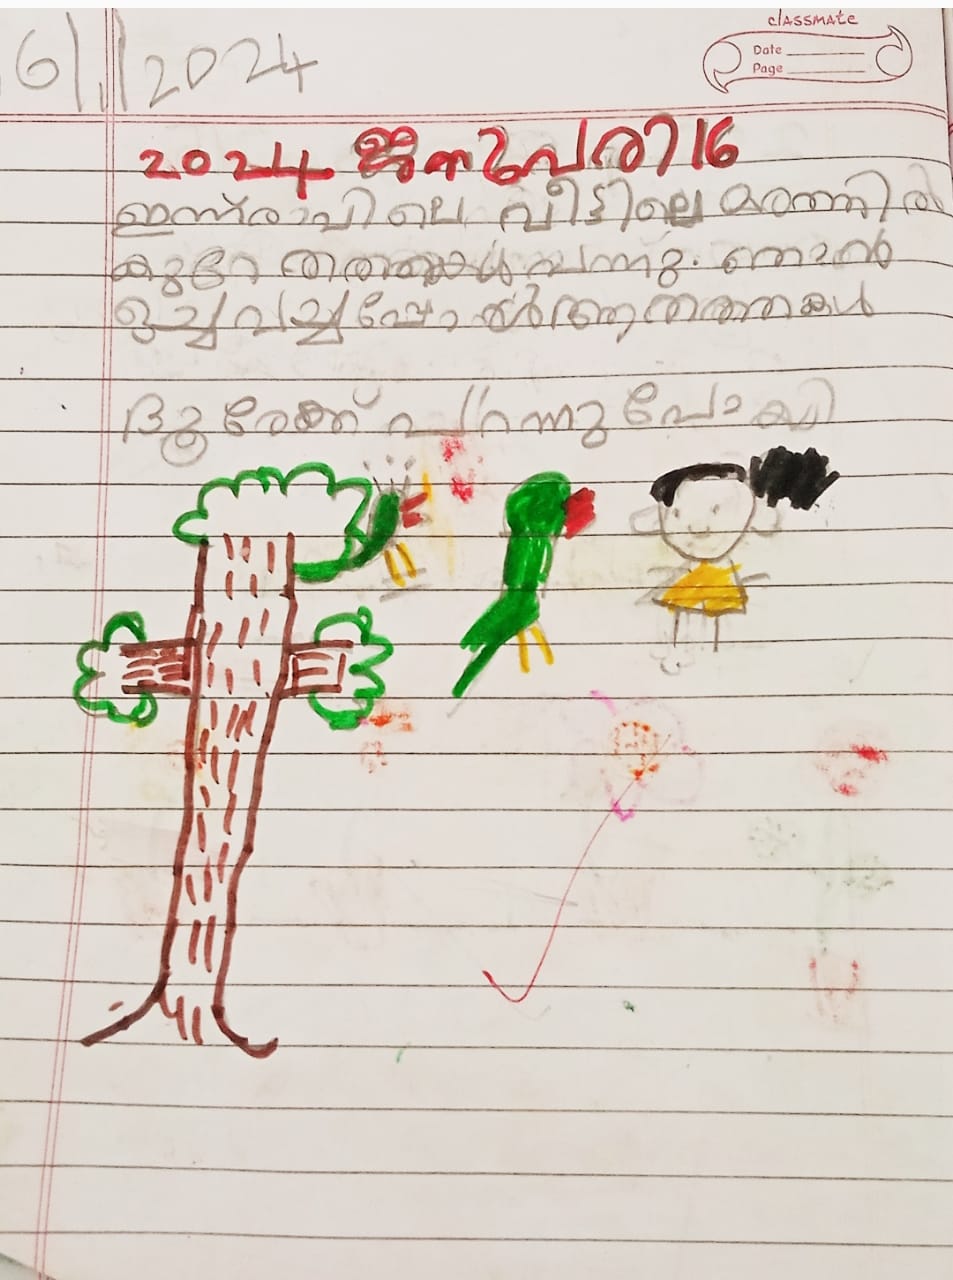 classmate
Date
Page
16/1/2024
2024 ജനുവരി 16
ഇന്ന് രാവിലെ വീട്ടിലെ മരത്തിൽ
കുറേ തത്തകൾ വന്നു. ഞാൻ
ഒച്ച വച്ചപ്പോൾ ആ തത്തകൾ
ദൂരേക്ക് പറന്നു പോയി